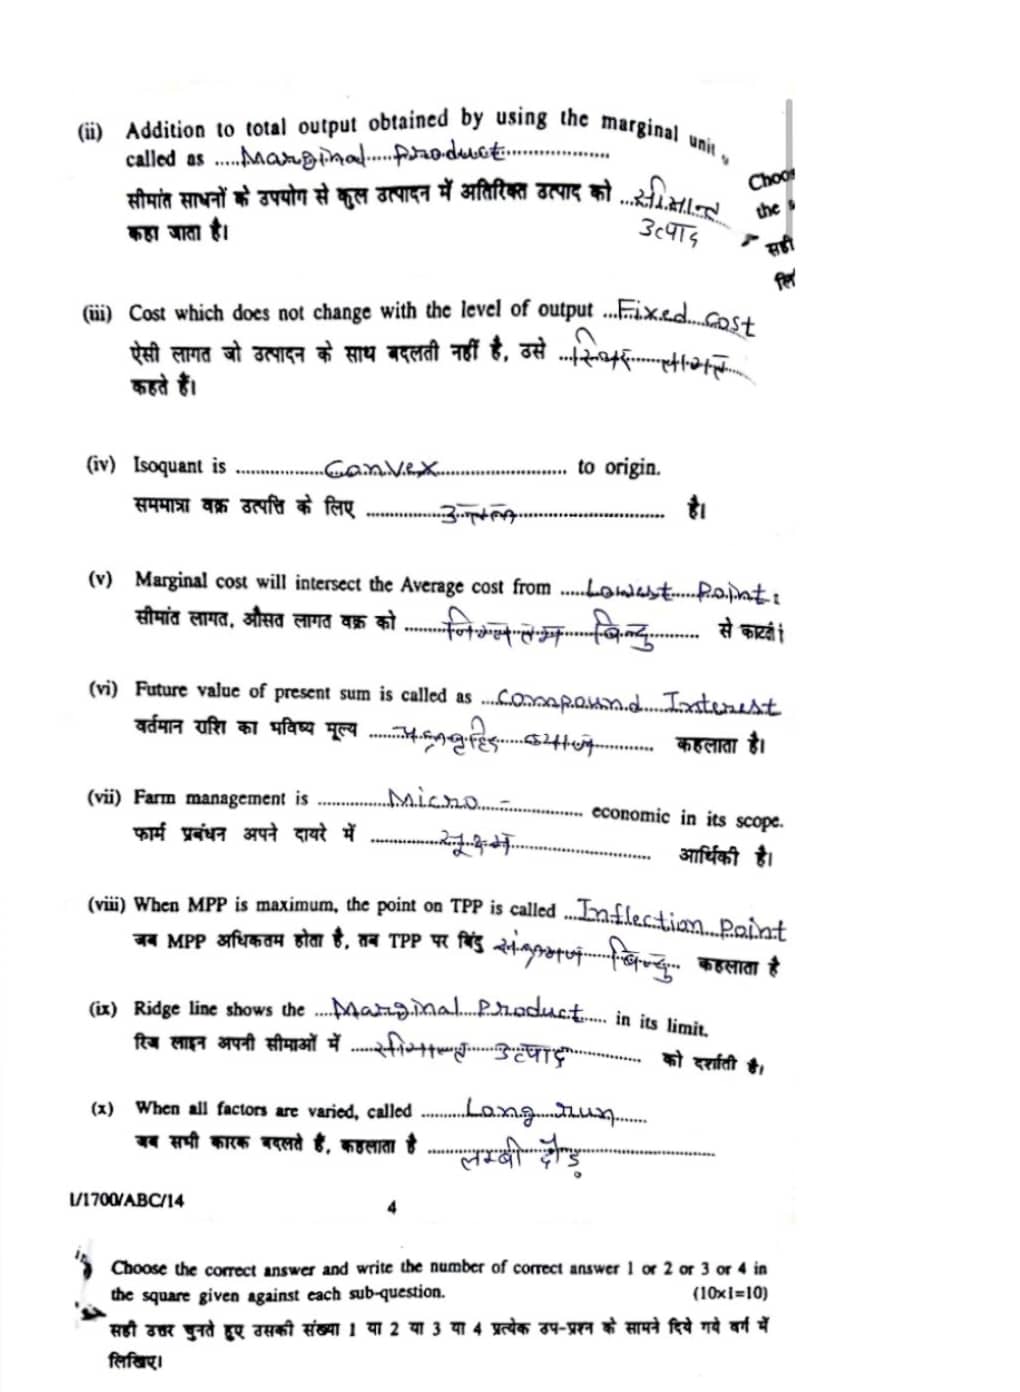 (ii) Addition to total output obtained by using the marginal unit,
called as .....Marginal.....Product..................
सीमांत साधनों के उपयोग से कुल उत्पादन में अतिरिक्त उत्पाद को ...सीमान्त
उत्पाद
कहा जाता है।
Choos
the
सही
लि
(iii) Cost which does not change with the level of output ...Fixed...Cost
ऐसी लागत जो उत्पादन के साथ बदलती नहीं है, उसे ...स्थिर.......लागत....
कहते हैं।
(iv) Isoquant is .................Convex......................... to origin.
सममात्रा वक्र उत्पत्ति के लिए ..............उन्नतल............................ है।
(v) Marginal cost will intersect the Average cost from .....Lowest.....Point:
सीमांत लागत, औसत लागत वक्र को ........निम्नतम......बिन्दु.......... से काटती।
(vi) Future value of present sum is called as ...Compound....Interest
वर्तमान राशि का भविष्य मूल्य .......चक्रवृद्धि.....ब्याज............ कहलाता है।
(vii) Farm management is ..............Micro..-.................. economic in its scope.
फार्म प्रबंधन अपने दायरे में ..............सूक्ष्म............................ आर्थिकी है।
(viii) When MPP is maximum, the point on TPP is called ...Inflection...Point
जब MPP अधिकतम होता है, तब TPP पर बिंदु संक्रमण......बिन्दु... कहलाता है
(ix) Ridge line shows the ....Marginal...Product..... in its limit.
रिज लाइन अपनी सीमाओं में .....सीमान्त......उत्पाद............... को दर्शाती है।
(x) When all factors are varied, called .........Long....run......
जब सभी कारक बदलते हैं, कहलाता है .....लम्बी दौड़........................
I/1700/ABC/14
4
Choose the correct answer and write the number of correct answer 1 or 2 or 3 or 4 in
the square given against each sub-question. (10x1=10)
सही उत्तर चुनते हुए उसकी संख्या 1 या 2 या 3 या 4 प्रत्येक उप-प्रश्न के सामने दिये गये वर्ग में
लिखिए।